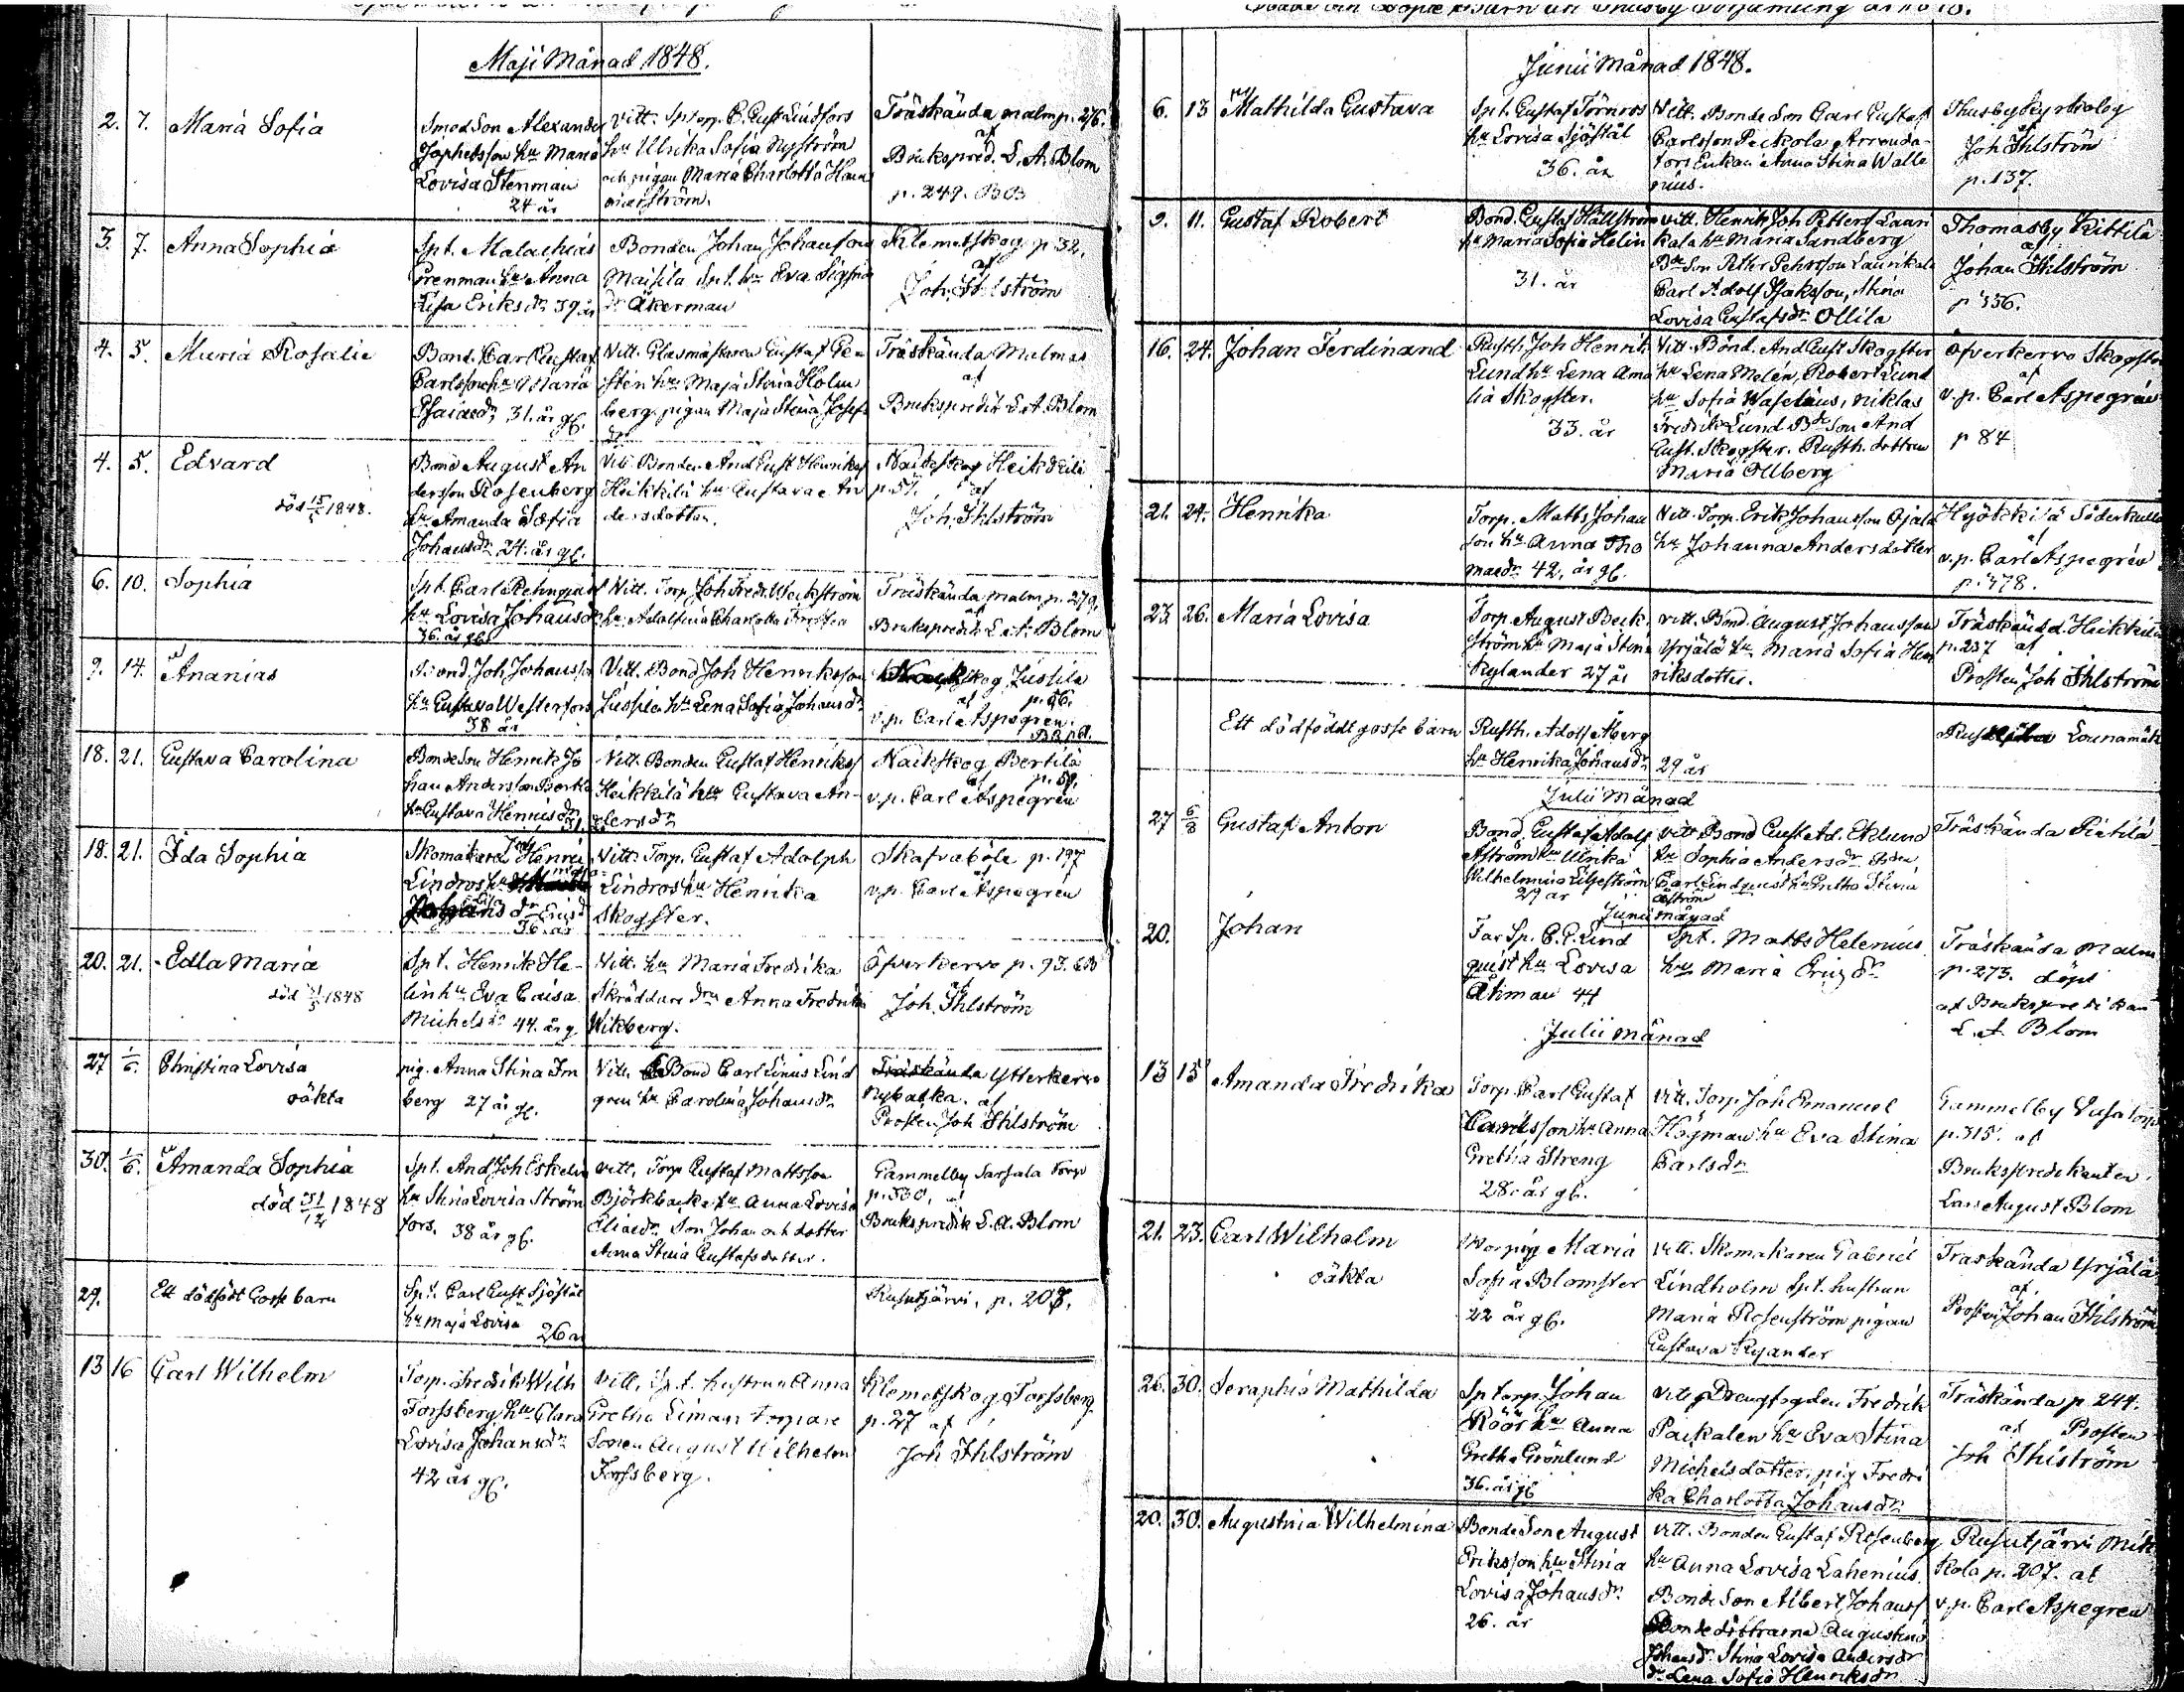 Maji Månad 1848.
2. 7. Maria Sofia
Smed Son Alexander
Japhetsson hu Maria
Lovisa Stenman
24 år
Vitt. Sptorp. C. Gust Lindfors
hu Ulrika Sofia Nyström
och pigan Maria Charlotta
Träskända malm p. 276.
af
Brukspred. L. A. Blom
p. 249. BB
3. 7. Anna Sophia
Spt. Malachias
Grenman hu Anna
Lisa Eriksdr 39 år
Bonden Johan Johansson
Maisila Spt. hu Eva
dr Åkerman
Klemetskog p 32.
af
Joh. Ihlström
4. 5. Maria Rosalie
Bond. Carl Gustaf
Carlsson hu Maria
Esaiaedr, 31. år gl.
Vitt. Glasmästaren Gustaf
hu Maja Stina Holm
berg. pigan Maja Stina Josefs
dr
Träskända Malmas
af
Brukspredik L. A. Blom
4. 5. Edvard
död 15/5 1848.
Bond August An
dersson Rosenberg
hu Amanda Sofia
Johansdr 24. år gl.
Vitt. Bonden And Gust Henriks
Heikkilä hu Gustava An
dersdotter.
Naikskog Heikkilä
p. 57. af
Joh. Ihlström
6. 10. Sophia
Spt. Carl
hu Lovisa Johansdr
36. år gl.
Vitt. Torp Joh Fredr. Weckström
hu Adolfina Charlotta
Träskända malm p. 279.
af
Brukspredik L. A. Blom
9. 14. Ananias
Bond. Joh. Johansson
hu Gustava Westerfors
38 år
Vitt. Bond Joh Henriksson
Jussila hu Lena Sofia Johansdr
Naikskog Jussila
af p. 56.
v. p. Carl Aspegren.
18. 21. Gustava Carolina
Bondeson Henrik Jo
han Andersson
hu Gustava Henriksdr
31
Vitt. Bonden Gustaf Henriks
Heikkilä hu Gustava An-
dersdr
Naikskog Bertilä
af p. 59.
v. p. Carl Aspegren
18. 21. Ida Sophia
Skomakaren Joh Henric
Lindros hu
dr
36. år
Vitt. Torp. Gustaf Adolph
Lindros hu Henrika
Skogster.
Skafvaböle p. 197
af
v. p. Carl Aspegren
20. 21. Edla Maria
1848
Spt. Henrik He-
lin hu Eva Caisa
Michelsdr 44. år g.
Vitt. hu Maria Fredrika
Skräddare dra Anna Fredrika
Wikberg.
Öfverkervo p. 93. BB
af
Joh. Ihlström
27 1/6. Christina Lovisa
oäkta
pig. Anna Stina
berg 27 år gl.
Vitt. Bond Carl Linus Lind
gren hu Carolina Johansdr
Träskända Ytterkervo
Nybacka. af
Prosten Joh Ihlström
30. 1/6. Amanda Sophia
död 31/12 1848
Spt. And Joh Eskelin
hu Stina Lovisa Ström
fors. 38 år gl.
Vitt. Torp Gustaf Mattsson
Björkbacka hu Anna Lovisa
Eliaedr Son Johan och dotter
Anna Stina Gustafsdotter.
Gammelby Sarsala Torp
p. 330. af
Brukspredik L. A. Blom
29. Ett dödfödt Gosse barn
Spt. Carl Gust Sjöstål
hu Maja Lovisa
26 år
Rusutjärvi. p. 208.
13 16 Carl Wilhelm
Torp. Fredrik Wilh
Forssberg hu Clara
Lovisa Johansdr
42 år gl.
Vitt. Spt. hustrun Anna
Gretha Liman torpare
Sonen August Wilhelm
Forssberg.
Klemetskog Forssberg
p. 27 af
Joh Ihlström
Junii Månad 1848.
6. 13 Mathilda Gustava
Spt. Gustaf Törnros
hu Lovisa Sjöstål
36. år
Vitt. Bonde Son Carl Gustaf
Carlsson Peckola Arrenda-
tors Enkan Anna Stina Walle
nius.
Thusby Kyrkoby
af
Joh Ihlström
p. 137.
9. 11. Gustaf Robert
Bond. Gustaf Hällström
hu Maria Sofia Helin
31. år
Vitt. Henrik Joh Petters Lauri
kala hu Maria Sandberg
Bde Son Petter Pehrsson Laurikala
Carl Adolf Isaksson, Stina
Lovisa Gustafsdr Ollila
Thomasby Kittilä
af
Johan Ihlström
p 336.
16. 24. Johan Ferdinand
Rusth. Joh Henrik
Lund hu Lena Ama
lia Skogster.
33. år
Vitt. Bond. And Gust Skogster
hu Lena Melén, Robert Lund
hu Sofia Waselius, Niklas
Fredrik Lund Bde Son And
Gust. Skogster. Rusth. dottren
Maria Ollberg
Öfverkervo Skogster
af
v. p. Carl Aspegrén
p 84
21. 24. Henrika
Torp. Matts Johan
son hu Anna Tho
maedr 42. år gl.
Vitt. Torp. Erik Johansson Ojala
hu Johanna Andersdotter
Hyökkilä Söderkulla
af
v. p. Carl Aspegrén
p. 478.
23. 26. Maria Lovisa
Torp August Beck
ström hu Maja Stina
Nylander 27 år
Vitt. Bond. August Johansson
Yrjälä hu Maria Sofia Hen
riksdotter.
Träskända Heikkilä
p. 237 af
Prosten Joh Ihlström
Ett dödfödt gosse barn
Rusth. Adolf Åberg
hu Henrika Johansdr 29 år
Lounamäki
Julii Månad
27 6/8 Gustaf Anton
Bond. Gustaf Adolf
Åström hu Ulrika
Wilhelmina Liljeström
29 år
Vitt Bond Gust Ad. Eklund
hu Sophia Andersdr
Carl Lindquist hu Gretha Stina
Åström
Träskända Pietilä
Junii månad
20. Johan
Far Sp. C. G. Lind
quist hu Lovisa
Åhman 44
Spt. Matts Helenius
hu Maria Ericsdr
Träskända Malm
p. 273. döpt
af Brukspredikan
L. A. Blom
Julii Månad
13 15 Amanda Fredrika
Torp. Carl Gustaf
Carlsson hu Anna
Gretha Streng
28. år gl.
Vitt. Torp Joh Emanuel
Högman hu Eva Stina
Carlsdr
Gammelby
p. 315. af
Brukspredikanten
Lars August Blom
21. 23. Carl Wilhelm
oäkta
Maria
Sofia Blomster
22 år gl.
Vitt. Skomakaren Gabriel
Lindholm Spt. hustrun
Maria Rosenström pigan
Gustava Ryander
Träskända Yrjälä
af
Prosten Johan Ihlström
26. 30. Seraphia Mathilda
Sp torp. Johan
Röör hu Anna
Gretha Grönlund
36. år gl
Vitt Fredrik
Paikalen hu Eva Stina
Michelsdotter, pig Fredri
ka Charlotta Johansdr
Träskända p. 244.
af Prosten
Joh Ihlström
20. 30. Augustina Wilhelmina
Bonde Son August
Eriksson hu Stina
Lovisa Johansdr
26. år
Vitt. Bonden Gustaf Rosenberg
hu Anna Lovisa Lahenius
Bonde Son Albert Johanss
Bonde döttrarna Augustina
Johansdr Stina Lovisa Anders
dr Lena Sofia Henriksdr
Rusutjärvi Mik
kola p. 207. af
v. p. Carl Aspegren